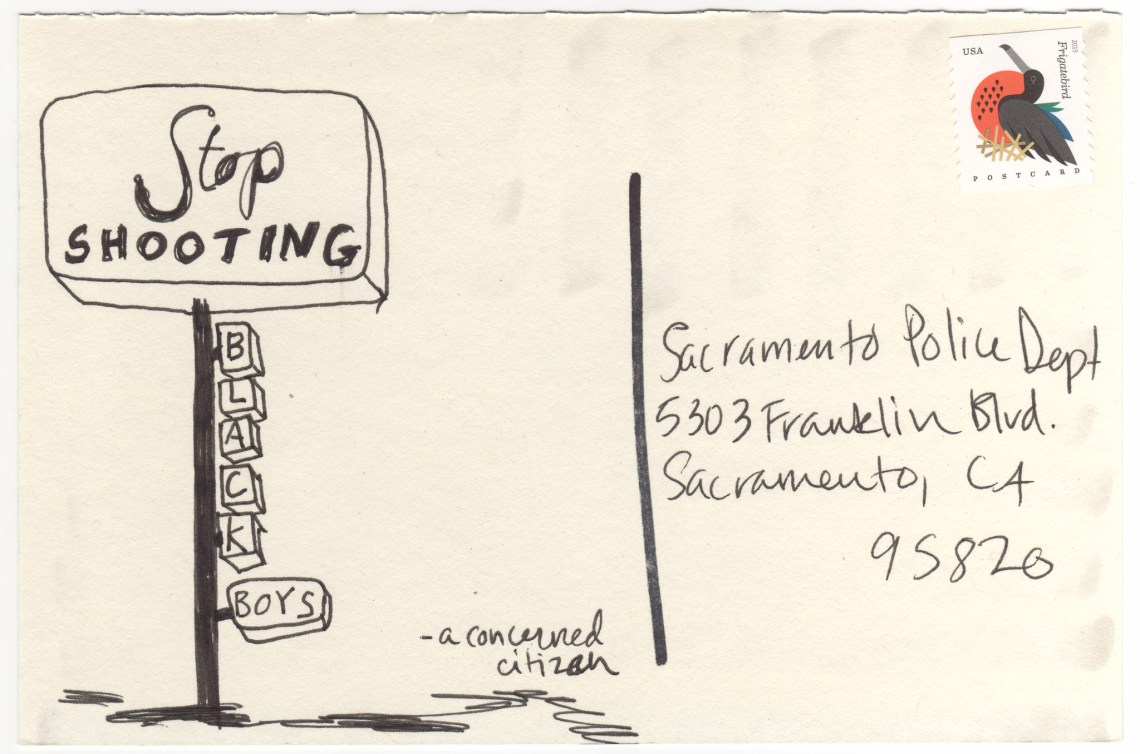 Stop
SHOOTING
B
L
A
C
K
BOYS
- a concerned
citizen
USA
2015
Frigatebird
POSTCARD
Sacramento Police Dept
5303 Franklin Blvd.
Sacramento, CA
95820